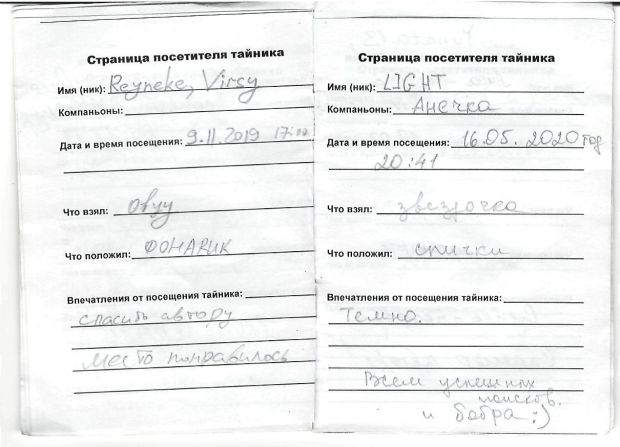 Страница посетителя тайника
Имя (ник): Reyneke, Virsy
Компаньоны:
Дата и время посещения: 9.11.2019 17:00
Что взял: овцу
Что положил: ФОНАРИК
Впечатления от посещения тайника:
спасибо автору
место понравилось
Страница посетителя тайника
Имя (ник): LIGHT
Компаньоны: Анечка
Дата и время посещения: 16.05.2020 год
20:41
Что взял: звездочка
Что положил: спички
Впечатления от посещения тайника:
Темно.
Всем успешных
поисков.
и бобра :)